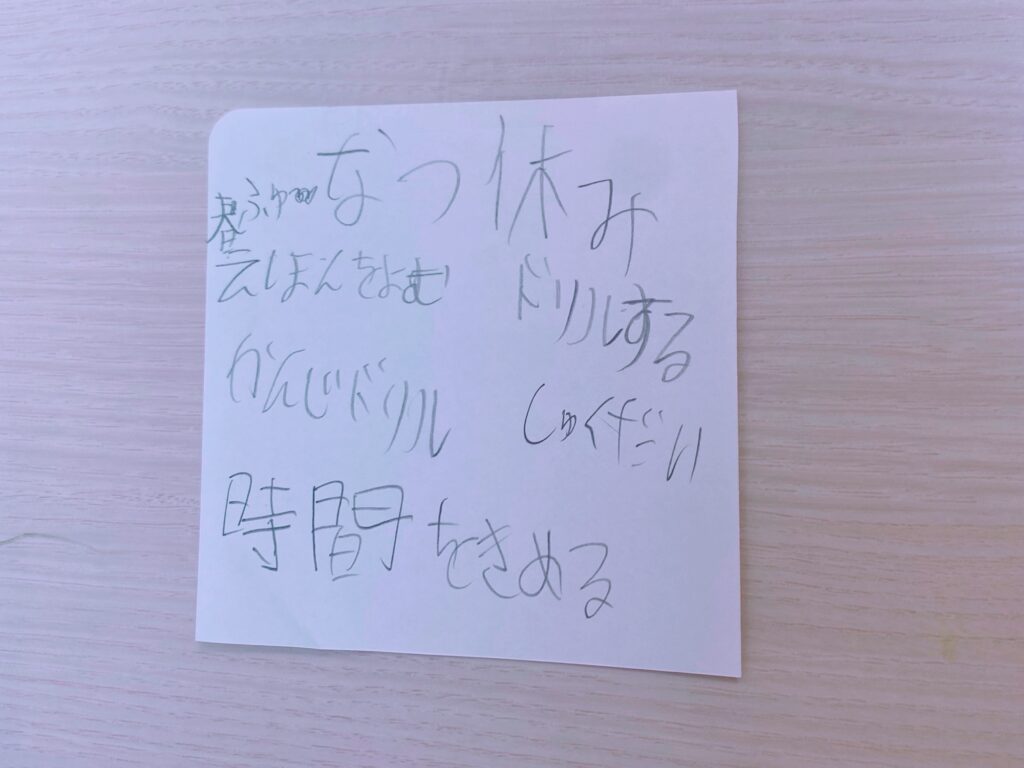 なつ休み
春ふゆ
えほんをよむ
ドリルする
かんじドリル
しゅくだい
時間をきめる